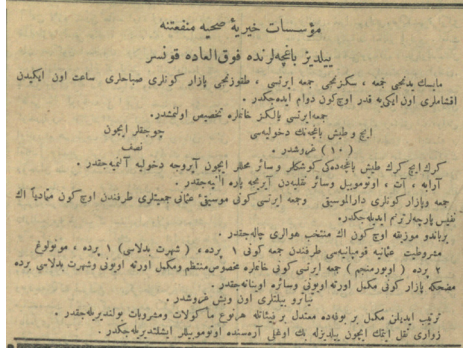 مؤسسات خیریهٔ صحیه منفعتنه
ییلدیز باغچه‌لرنده فوق‌العاده قونسر
مایسك یدنجی جمعه ، سكزنجی جمعه ایرتسی ، طقوزنجی پازار كونلری صباحلری ساعت اون ایكیدن
اقشاملری اون ایكی‌یه قدر اوچ كون دوام ایده‌جكدر .
جمعه‌ایرتسی یالكز خانملره تخصیص اولنمشدر .
ایچ و طیش باغچه‌نك دخولیه‌سی چوجقلر ایچون
( ۱۰ ) غروشدر . نصف
كرك ایچ كرك طیش باغچه‌ده‌كی كوشكلر و سائر محللر ایچون آیروجه دخولیه آلنمیه‌جقدر .
آرابه ، آت ، اوتوموبیل وسائر نقلیه‌دن آیریجه پاره آلنیه‌جقدر .
جمعه وپازار كونلری دارالموسیقی وجمعه ایرتسی كونی موسیقئ عثمانی جمعیتلری طرفندن اوچ كون متمادیاً اك
نفیس پارچه‌لر ترنم ایدیله‌جكدر .
بزباندو موزیقه اوچ كون اك منتخب هوالری چاله‌جقدر .
مشروطیت عثمانیه قومپانیه‌سی طرفندن جمعه كونی ۱ پرده ، ( شهرت بدلاسی ) ۱ پرده ، مونولوغ
۲ پرده ( اوتورمنجم ) جمعه ایرتسی كونی خانملره مخصوص منتظم ومكمل اورته اویونی وشهرت بدلاسی پرده
مضحكه پازار كونی مكمل اورته اویونی وسائره اوینانه‌جقدر .
تیاترو بیلتلری اون وبش غروشدر .
ترتیب ایدیلن مكمل بر بوفه‌ده معتدل بر فیئاتله هرنوع مأكولات ومشروبات بولندیریله‌جقدر .
زواری نقل ایتمك ایچون ییلدیزله بك اوغلی آره‌سنده اوتوموبیللر ایشلتدیریله‌جكدر .